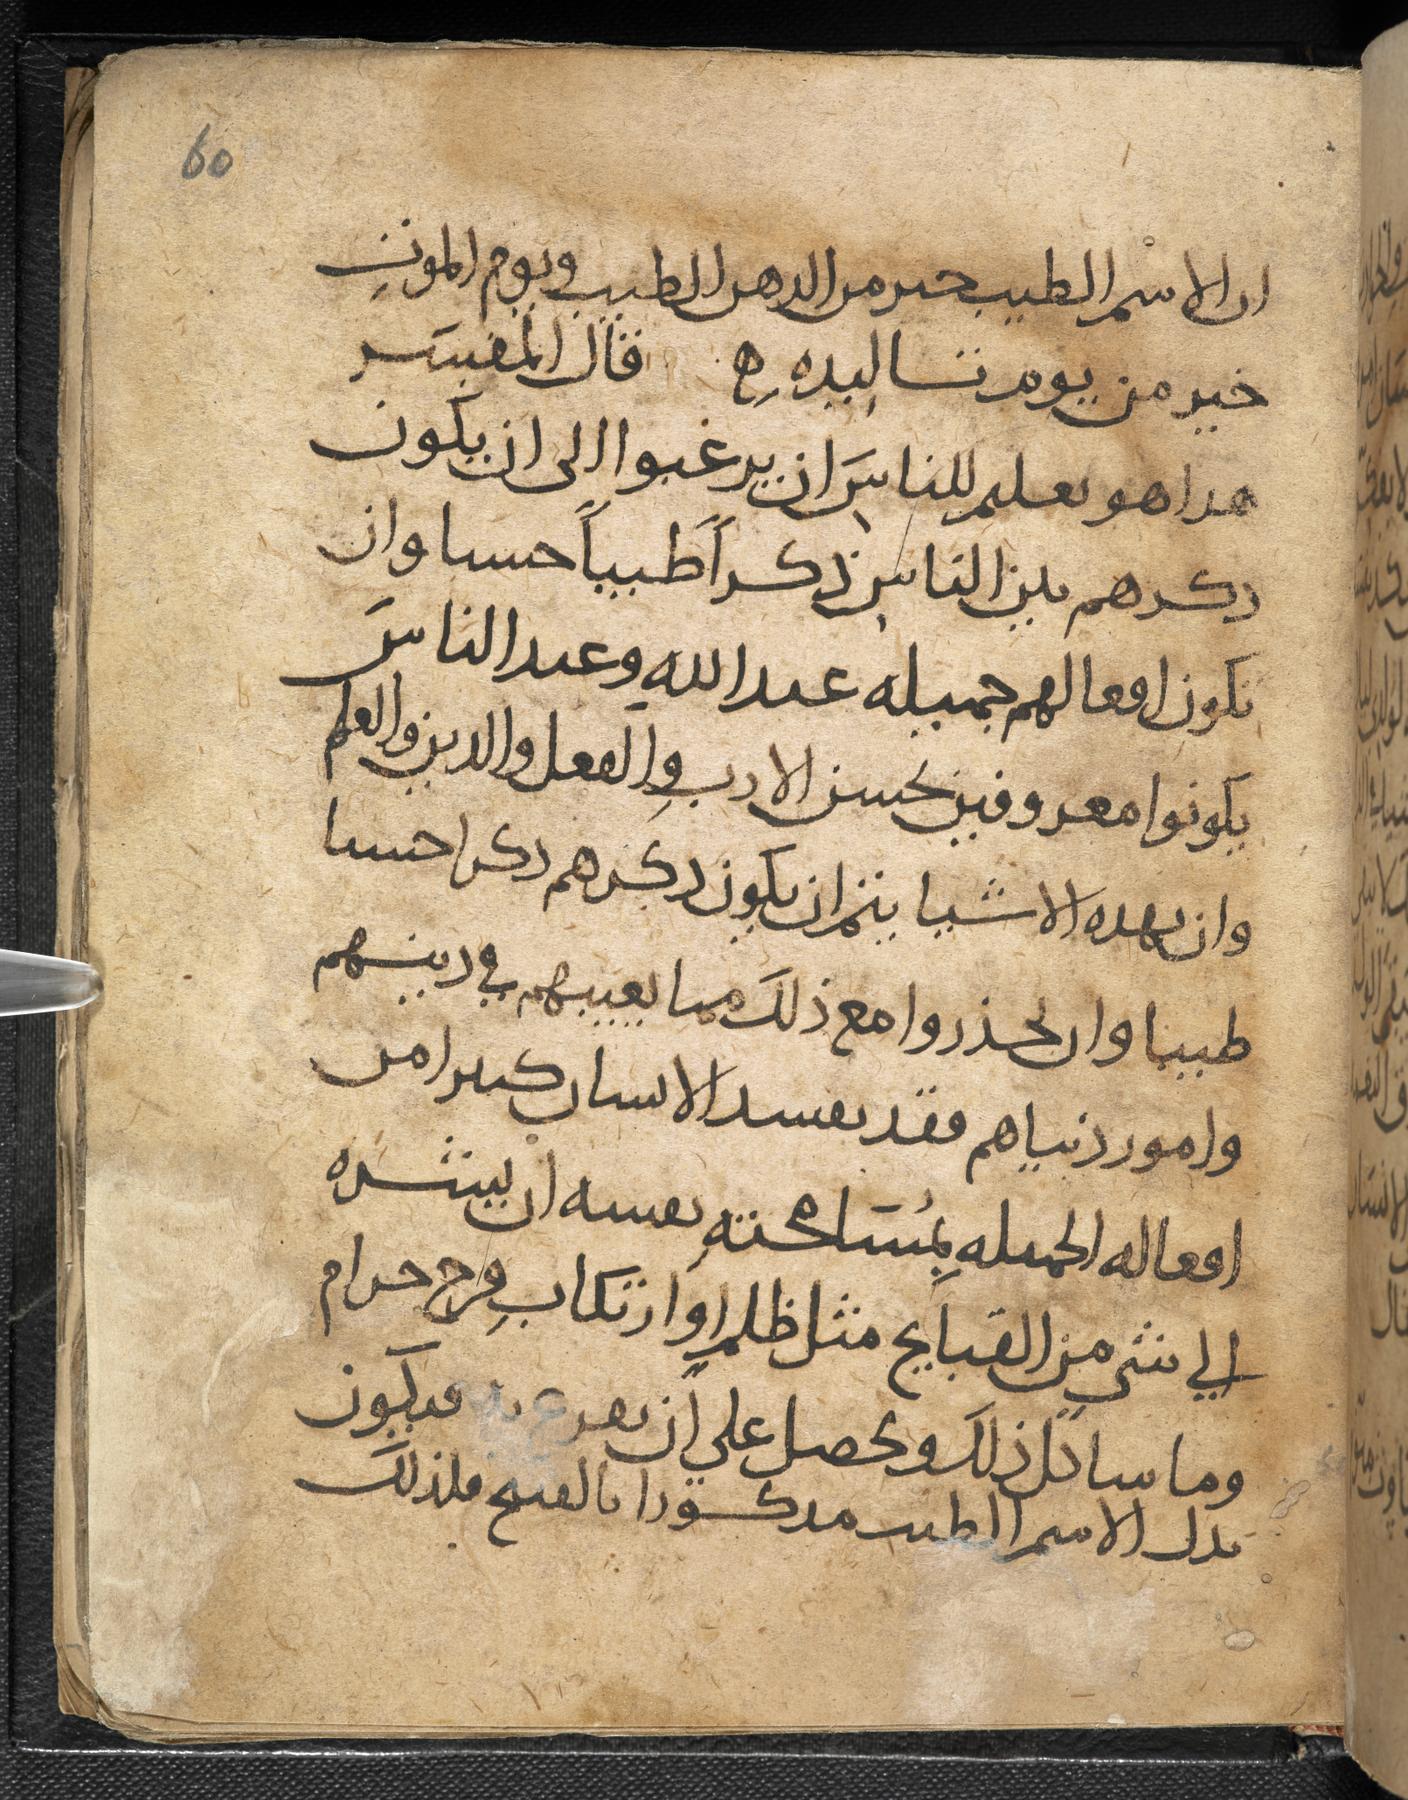 60
ان الاسم الطيب خير من الدهن الطيب ويوم الموت
خير من يوم تساليده ح قال المفسر
هدا هو تعليم للناس ان يرغبوا الى ان يكون
دكرهم بين الناس ذكراً طيباً حسنا وان
تكون افعالهم جميله عند الله وعند الناس
يكونوا معروفين بحسن الادب والفعل والدين والعلم
وان بهده الاشيا يتم ان يكون دكرهم دكرا حسنا
طيبا وان يحذروا مع ذلك مما يعيبهم في دينهم
وامور دنياهم فقد يفسد الانسان كثيرا من
افعاله الجميله بمسامحته نفسه ان يشره
الي شي من القبايح مثل ظلم او ارتكاب فرج حرام
وما شاكل ذلك ويحصل علي ان يعرف به فيكون
بدل الاسم الطيب مدكورا بالقبيح فلذلك